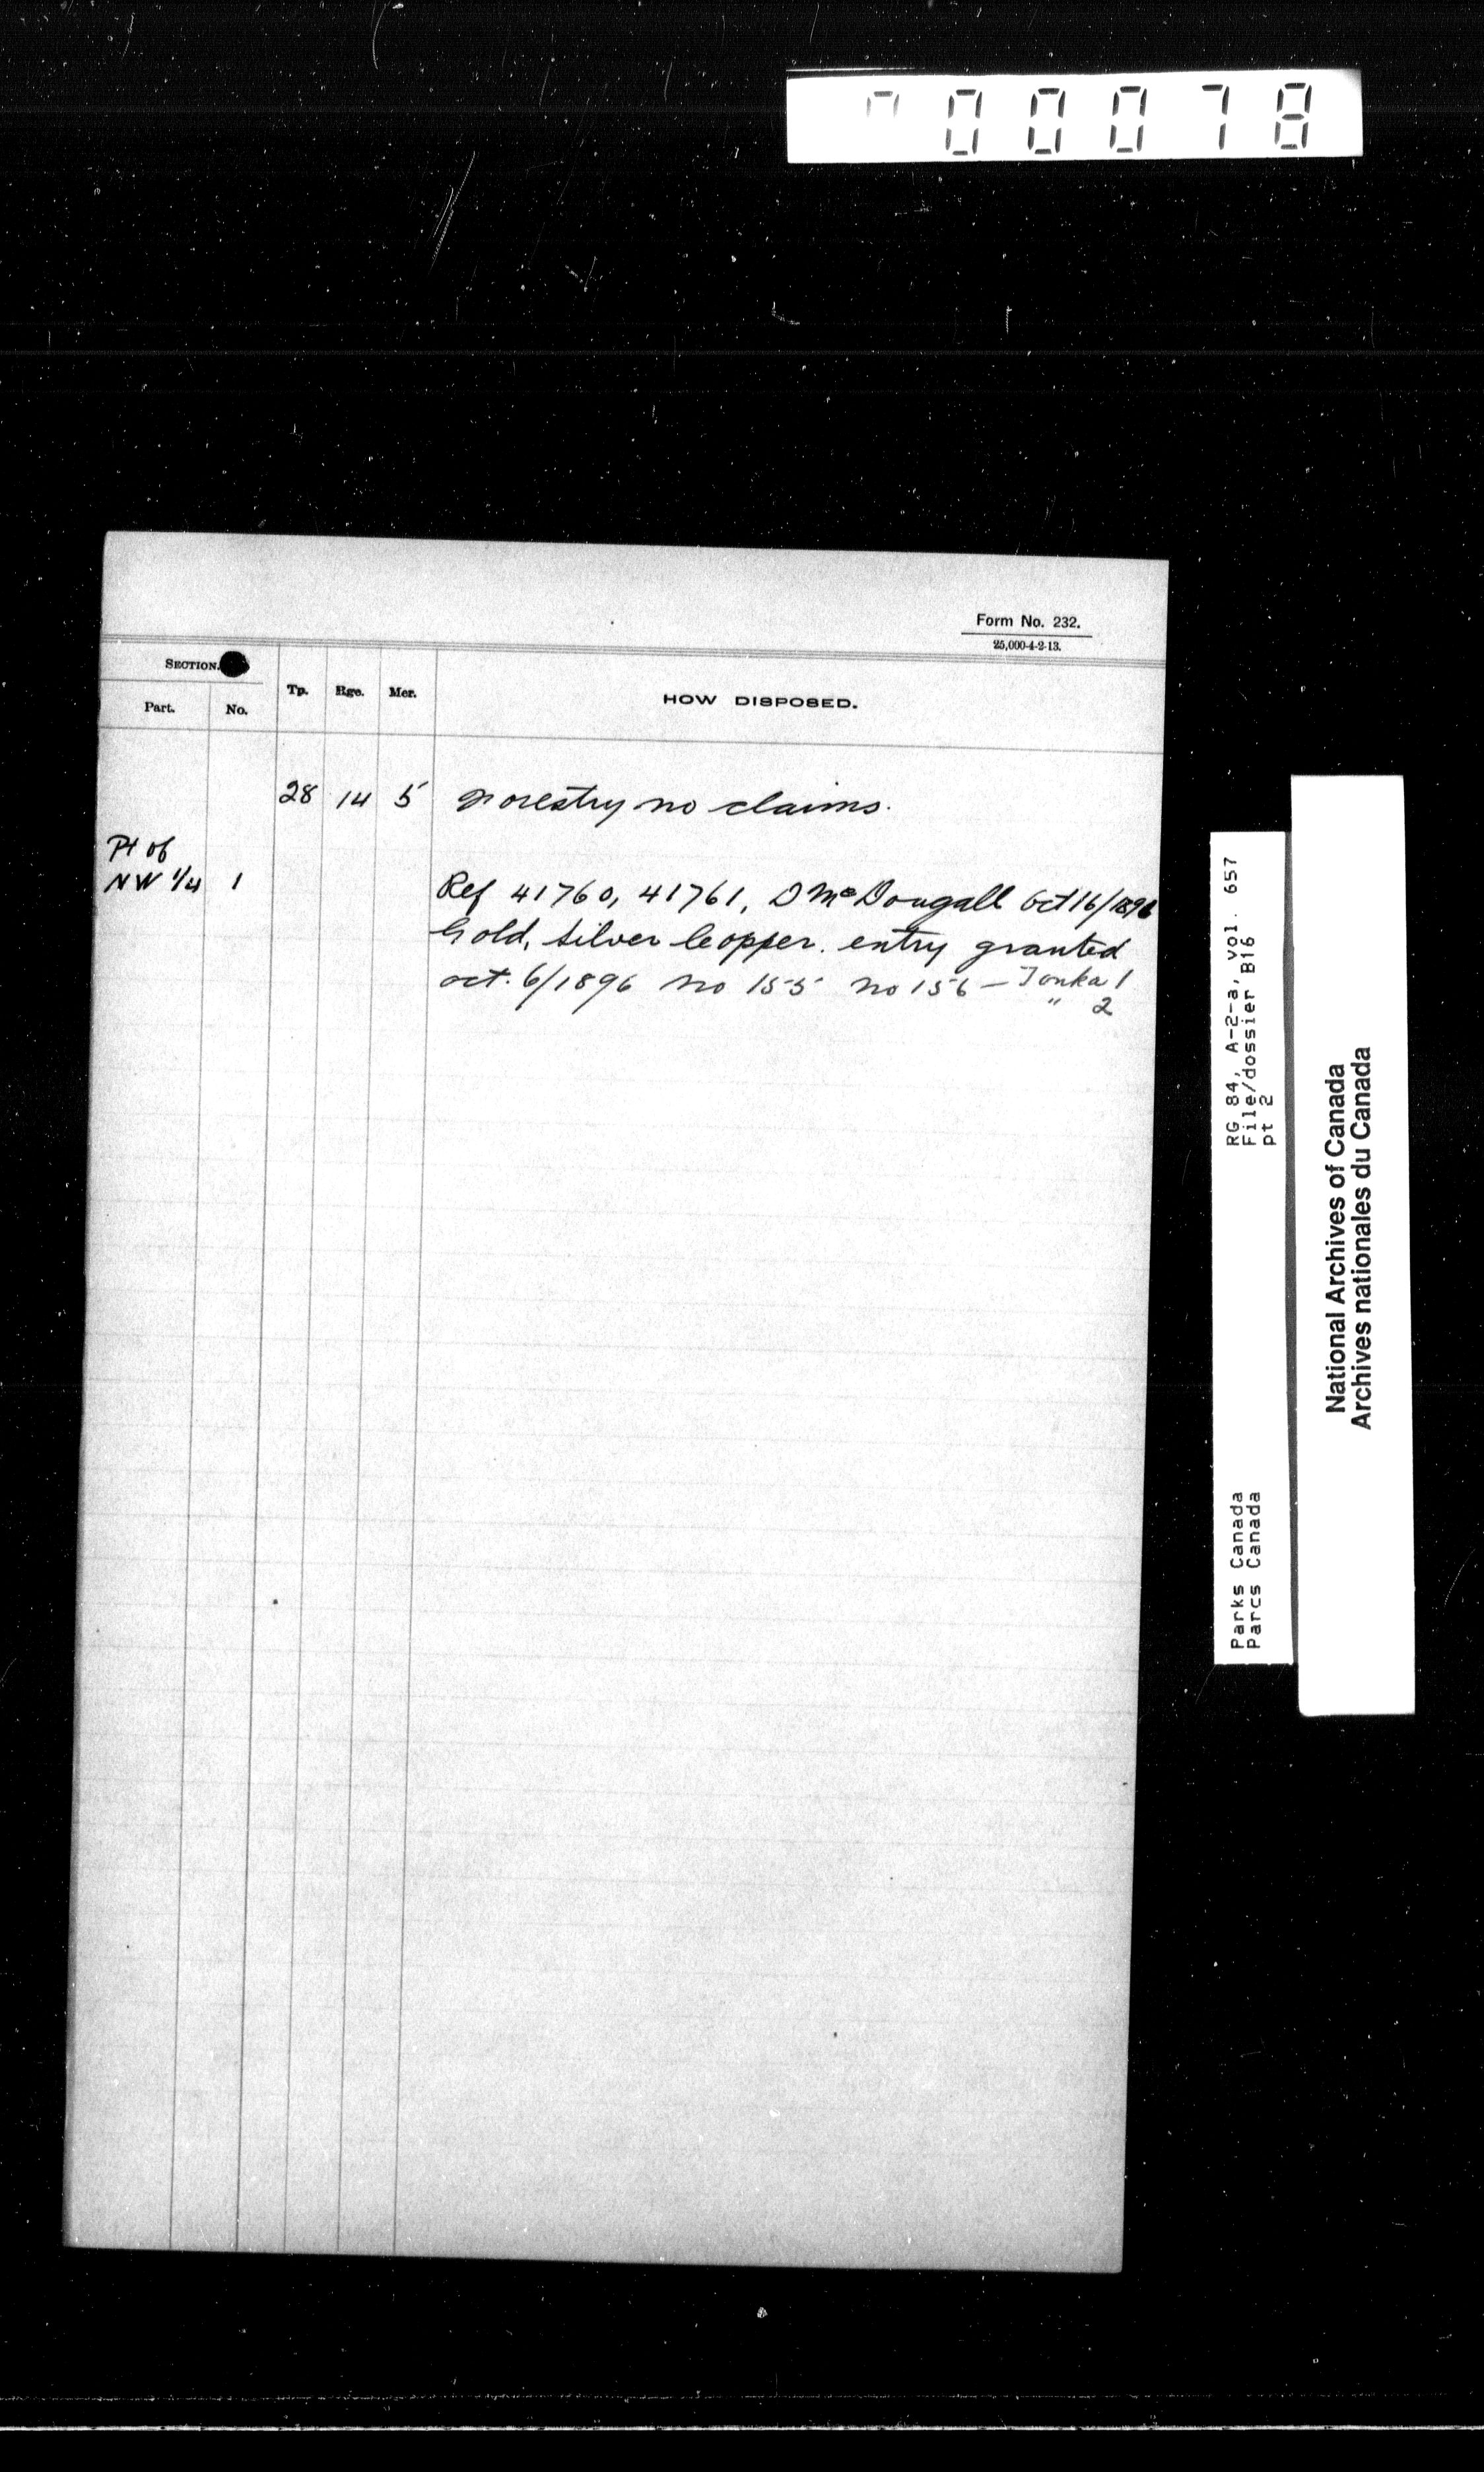 00078
Form No. 232.
25,000-4-2-13.
SECTION.
Part. No. Tp. Rge. Mer. HOW DISPOSED.
28 14 5 Forestry no claims.
Pt of
NW 1/4 1 Ref 41760, 41761, D McDougall Oct 16/1896
Gold, Silver Copper. entry granted
oct. 6/1896 no 155 no 156 — Tonka 1
" 2
RG 84, A-2-a, vol. 657
File/dossier B16
pt 2
Parks Canada
Parcs Canada
National Archives of Canada
Archives nationales du Canada